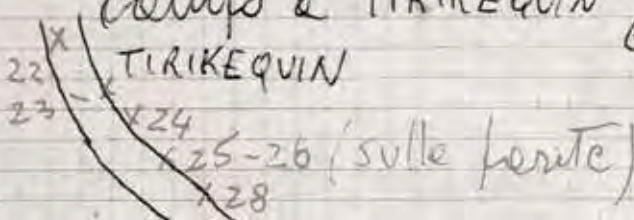 campo a TIRIKEQUIN
x
22 TIRIKEQUIN
23 - x
x24
x25-26 (sulle
x28